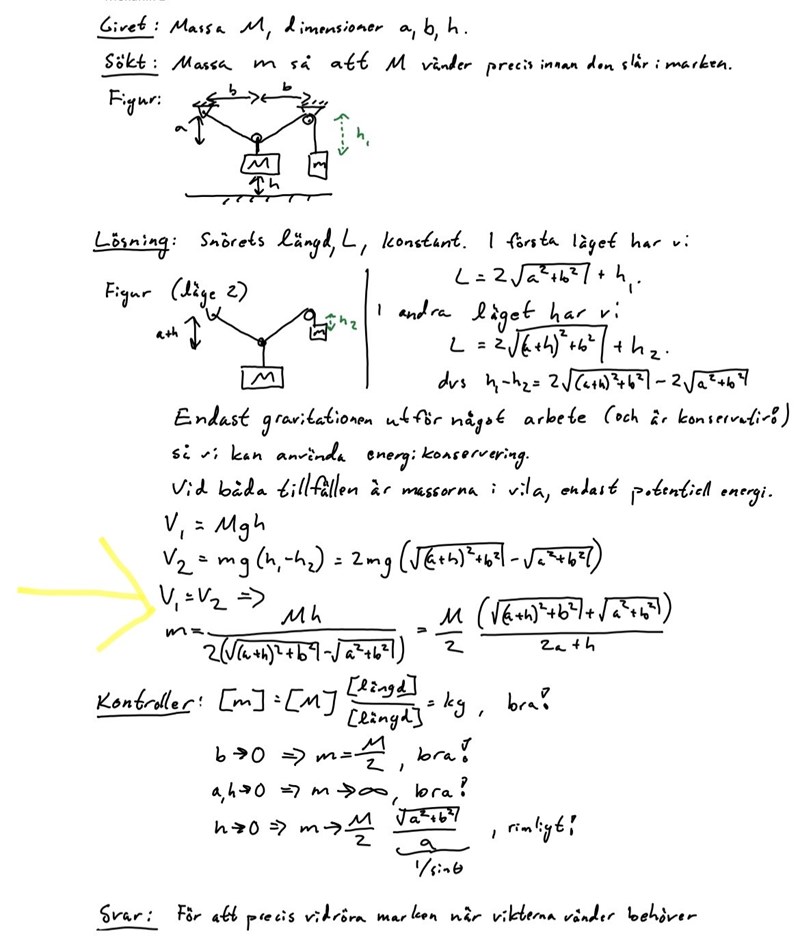 Givet: Massa M, dimensioner a, b, h.
Sökt: Massa m så att M vänder precis innan den slår i marken.
Figur:
b b
a
h₁
M
m
h
Lösning: Snörets längd, L, konstant. I första läget har vi
L = 2√(a²+b²) + h₁.
Figur (läge 2)
a+h
h₂
m
M
I andra läget har vi
L = 2√((a+h)²+b²) + h₂.
dvs h₁-h₂ = 2√((a+h)²+b²) - 2√(a²+b²)
Endast gravitationen utför något arbete (och är konservativ!)
så vi kan använda energikonservering.
Vid båda tillfällen är massorna i vila, endast potentiell energi.
V₁ = Mgh
V₂ = mg(h₁-h₂) = 2mg(√((a+h)²+b²) - √(a²+b²))
V₁ = V₂ ⇒
m = Mh / 2(√((a+h)²+b²) - √(a²+b²)) = M/2 (√((a+h)²+b²) + √(a²+b²)) / 2a+h
Kontroller: [m] = [M] [längd]/[längd] = kg, bra!
b→0 ⇒ m = M/2, bra!
a,h→0 ⇒ m→∞, bra!
h→0 ⇒ m→ M/2 √(a²+b²)/a, rimligt!
1/sinθ
Svar: För att precis vidröra marken när vikterna vänder behöver